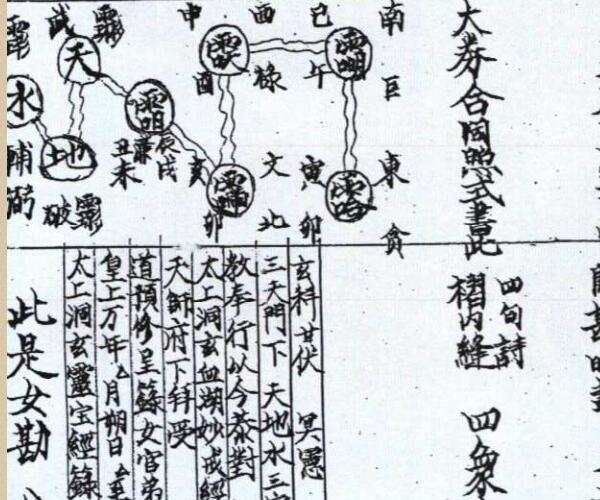 大券合同照式書此
四句詩
褶内縫
四衆
南
巨
東
貪
巳
午
寅
卯
西
祿
文
北
申
酉
亥
卯
辰戌
丑未
廉
武
天
地
破
水
輔
弼
玄科廿伏 冥憲
三天門下 天地水三官
教奉行以今恭對
太上洞玄血湖妙戒經
天師府下拜受
道預修呈籙女官弟
皇上万年 月朔日 至
太上洞玄靈宝經籙
此是女勘